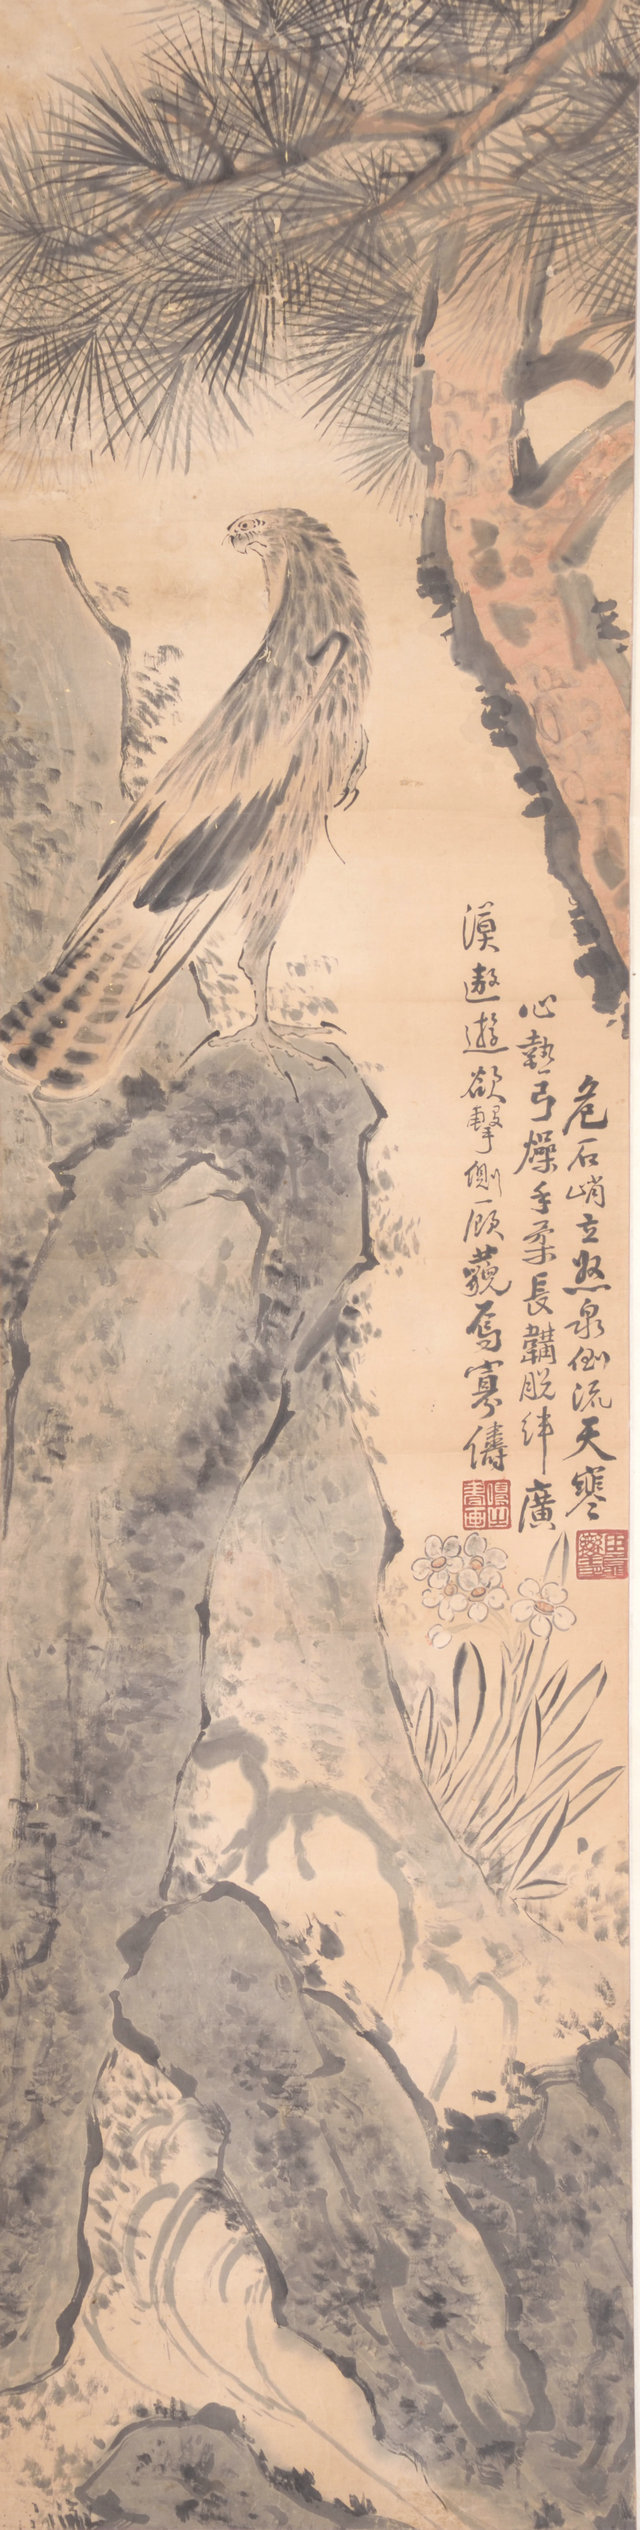 危石峭立怒泉倒流天寒
心熱弓燥手柔長韝脫絆廣
漠遨遊欲擊側顧藐焉寡儔